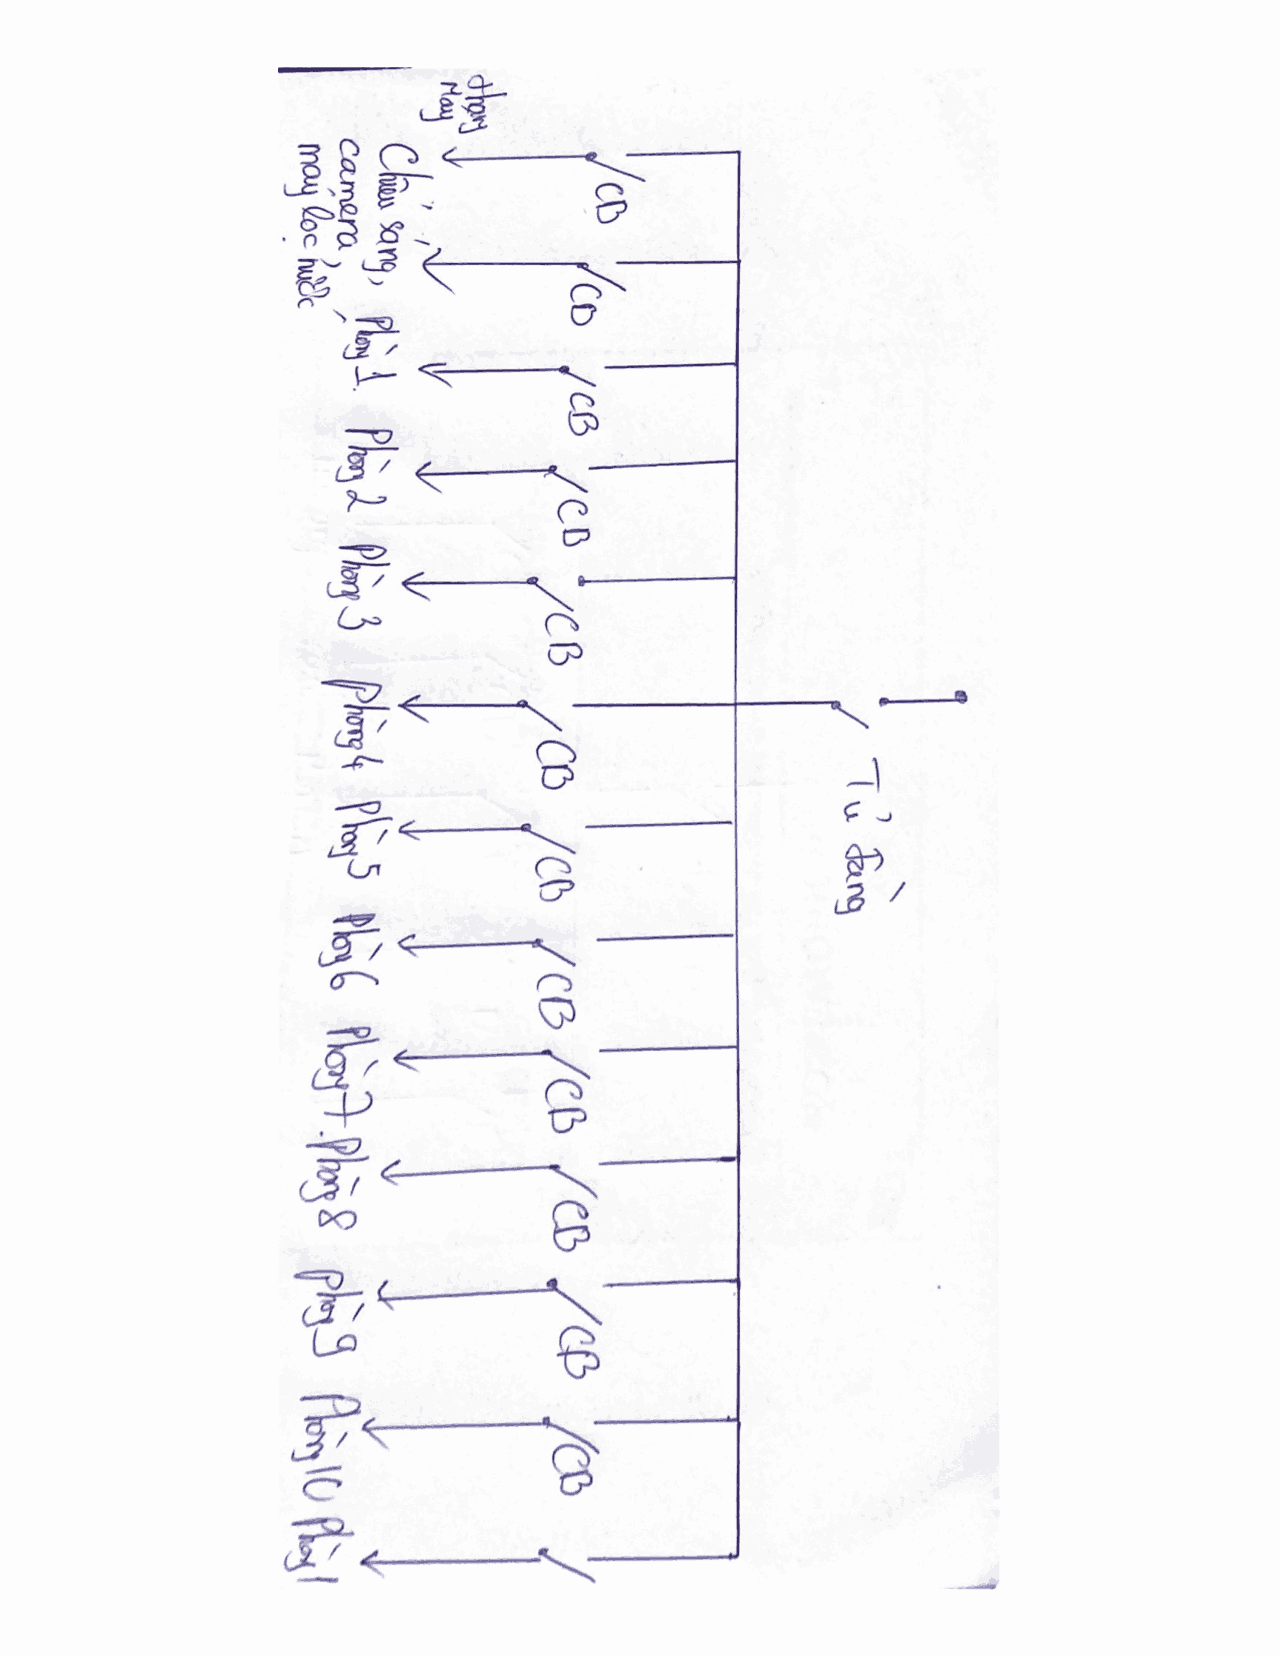 Tủ tầng
CB
CB
CB
CB
CB
CB
CB
CB
CB
CB
CB
CB
thang
máy
Chiếu sáng,
camera,
máy lọc nước
Phòng 1
Phòng 2
Phòng 3
Phòng 4
Phòng 5
Phòng 6
Phòng 7
Phòng 8
Phòng 9
Phòng 10
Phòng 1